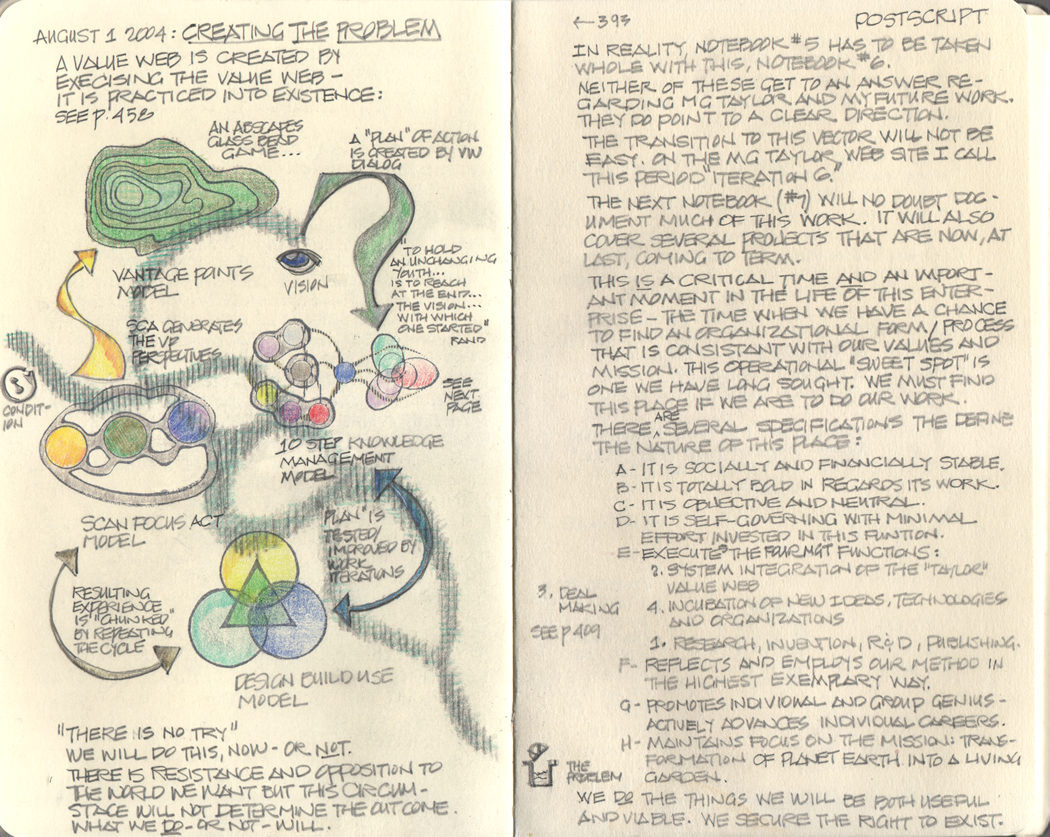 AUGUST 1 2004: CREATING THE PROBLEM
A VALUE WEB IS CREATED BY
EXECISING THE VALUE WEB -
IT IS PRACTICED INTO EXISTENCE:
SEE P. 458
AN ABSCAPES
GLASS BEAD
GAME...
A "PLAN" OF ACTION
IS CREATED BY VW
DIALOG
VISION
"TO HOLD
AN UNCHANGING
YOUTH...
IS TO REACH
AT THE END...
THE VISION...
WITH WHICH
ONE STARTED"
RAND
VANTAGE POINTS
MODEL
SCA GENERATES
THE VP
PERSPECTIVES
SEE
NEXT
PAGE
CONDIT-
ION
10 STEP KNOWLEDGE
MANAGEMENT
MODEL
SCAN FOCUS ACT
MODEL
"PLAN" IS
TESTED/
IMPROVED BY
WORK
ITERATIONS
RESULTING
EXPERIENCE
IS "CHUNKED"
BY REPEATING
THE CYCLE
DESIGN BUILD USE
MODEL
"THERE IS NO TRY"
WE WILL DO THIS, NOW - OR NOT.
THERE IS RESISTANCE AND OPPOSITION TO
THE WORLD WE WANT BUT THIS CIRCUM-
STACE WILL NOT DETERMINE THE OUTCOME.
WHAT WE DO - OR NOT - WILL.
←393
POSTSCRIPT
IN REALITY, NOTEBOOK #5 HAS TO BE TAKEN
WHOLE WITH THIS, NOTEBOOK #6.
NEITHER OF THESE GET TO AN ANSWER RE-
GARDING MG TAYLOR AND MY FUTURE WORK.
THEY DO POINT TO A CLEAR DIRECTION.
THE TRANSITION TO THIS VECTOR WILL NOT BE
EASY. ON THE MG TAYLOR, WEB SITE I CALL
THIS PERIOD "ITERATION 6."
THE NEXT NOTEBOOK (#7) WILL NO DOUBT DOC-
UMENT MUCH OF THIS WORK. IT WILL ALSO
COVER SEVERAL PROJECTS THAT ARE NOW, AT
LAST, COMING TO TERM.
THIS IS A CRITICAL TIME AND AN IMPORT-
ANT MOMENT IN THE LIFE OF THIS ENTER-
PRISE - THE TIME WHEN WE HAVE A CHANCE
TO FIND AN ORGANIZATIONAL FORM/PROCESS
THAT IS CONSISTANT WITH OUR VALUES AND
MISSION. THIS OPERATIONAL "SWEET SPOT" IS
ONE WE HAVE LONG SOUGHT. WE MUST FIND
THIS PLACE IF WE ARE TO DO OUR WORK.
THERE ARE SEVERAL SPECIFICATIONS THE DEFINE
THE NATURE OF THIS PLACE:
A - IT IS SOCIALLY AND FINANCIALLY STABLE.
B - IT IS TOTALLY BOLD IN REGARDS ITS WORK.
C - IT IS OBJECTIVE AND NEUTRAL.
D - IT IS SELF-GOVERNING WITH MINIMAL
EFFORT INVESTED IN THIS FUNTION.
E - EXECUTES THE FOUR MGT FUNCTIONS:
2. SYSTEM INTEGRATION OF THE "TAYLOR"
VALUE WEB
3. DEAL
MAKING
SEE P 409
4. INCUBATION OF NEW IDEAS, TECHNOLOGIES
AND ORGANIZATIONS
1. RESEARCH, INVENTION, R&D, PUBLISHING.
F - REFLECTS AND EMPLOYS OUR METHOD IN
THE HIGHEST EXEMPLARY WAY.
G - PROMOTES INDIVIDUAL AND GROUP GENIUS -
ACTIVELY ADVANCES INDIVIDUAL CAREERS.
H - MAINTAINS FOCUS ON THE MISSION: TRANS-
FORMATION OF PLANET EARTH INTO A LIVING
GARDEN.
THE
PROBLEM
WE DO THE THINGS WE WILL BE BOTH USEFUL
AND VIABLE. WE SECURE THE RIGHT TO EXIST.